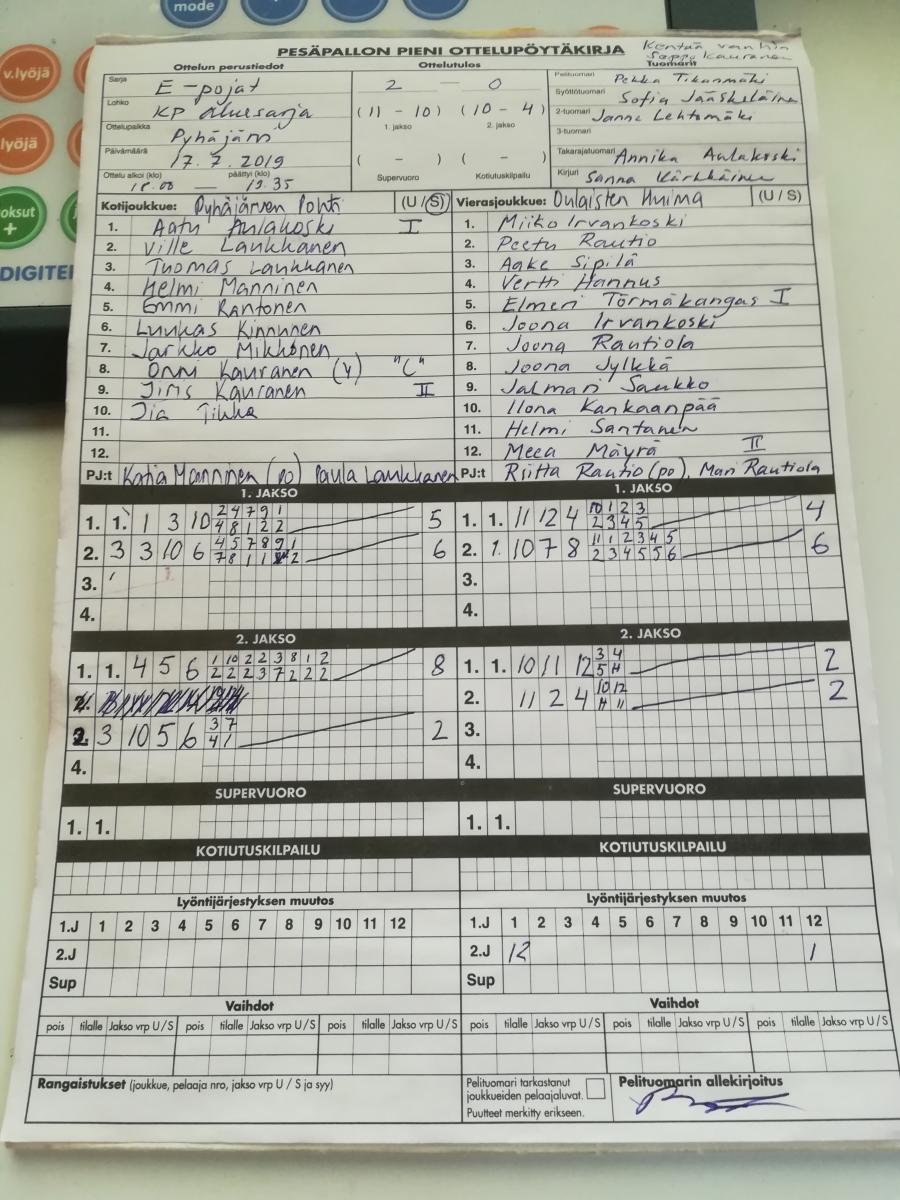 mode
v.lyöjä
lyöjä
oksut
+
DIGITE
PESÄPALLON PIENI OTTELUPÖYTÄKIRJA
Kentän vanhin
Seppo Kauranen
Ottelun perustiedot
Ottelutulos
Tuomarit
Sarja E-pojat
Lohko KP Aluesarja
Ottelupaikka Pyhäjärvi
Päivämäärä 17.7.2019
Ottelu alkoi (klo) päättyi (klo)
18.00 — 19.35
2 — 0
(11 - 10) (10 - 4)
1. jakso 2. jakso
( - ) ( - )
Supervuoro Kotiutuskilpailu
Pelituomari Pekka Tikanmäki
Syöttötuomari Sofia Jääskeläinen
2-tuomari Janne Lehtomäki
3-tuomari
Takarajatuomari Annika Aulakoski
Kirjuri Sanna Kärkkäinen
Kotijoukkue: Pyhäjärven Pohti (U / S)
1. Aatu Aulakoski I
2. Ville Laukkanen
3. Tuomas Laukkanen
4. Helmi Manninen
5. Emmi Rantonen
6. Luukas Kinnunen
7. Jarkko Mikkonen
8. Onni Kauranen (V) "C"
9. Jiris Kauranen II
10. Iia Tikka
11.
12.
PJ:t Katja Manninen (po) Paula Laukkanen
Vierasjoukkue: Oulaisten Huima (U / S)
1. Miiko Irvankoski
2. Peetu Rautio
3. Aake Sipilä
4. Vertti Hannus
5. Elmeri Törmäkangas I
6. Joona Irvankoski
7. Joona Rautiola
8. Joona Jylkkä
9. Jalmari Saukko
10. Ilona Kankaanpää
11. Helmi Santanen
12. Meea Mäyrä II
PJ:t Riitta Rautio (po), Mari Rautiola
1. JAKSO
1. 1. 1 3 10 2 4 7 9 1 5
4 8 1 2 2
2. 3 3 10 6 4 5 7 8 9 1 6
7 8 1 1 2
3.
4.
1. JAKSO
1. 1. 11 12 4 10 1 2 3 4
2 3 4 5
2. 1. 10 7 8 11 1 2 3 4 5 6
2 3 4 5 5 6
3.
4.
2. JAKSO
1. 1. 4 5 6 1 10 2 2 3 8 1 2 8
2 2 2 3 7 2 2 2
2. 3 10 5 6 3 7 2
4 1
4.
2. JAKSO
1. 1. 10 11 12 3 4 2
5 H
2. 11 2 4 10 12 2
H 11
3.
4.
SUPERVUORO
1. 1.
SUPERVUORO
1. 1.
KOTIUTUSKILPAILU
KOTIUTUSKILPAILU
Lyöntijärjestyksen muutos
1.J 1 2 3 4 5 6 7 8 9 10 11 12
2.J
Sup
Lyöntijärjestyksen muutos
1.J 1 2 3 4 5 6 7 8 9 10 11 12
2.J 12 1
Sup
Vaihdot
pois tilalle Jakso vrp U / S pois tilalle Jakso vrp U / S pois tilalle Jakso vrp U / S
Vaihdot
pois tilalle Jakso vrp U / S pois tilalle Jakso vrp U / S pois tilalle Jakso vrp U / S
Rangaistukset (joukkue, pelaaja nro, jakso vrp U / S ja syy)
Pelituomari tarkastanut
joukkueiden pelaajaluvat.
Puutteet merkitty erikseen.
Pelituomarin allekirjoitus